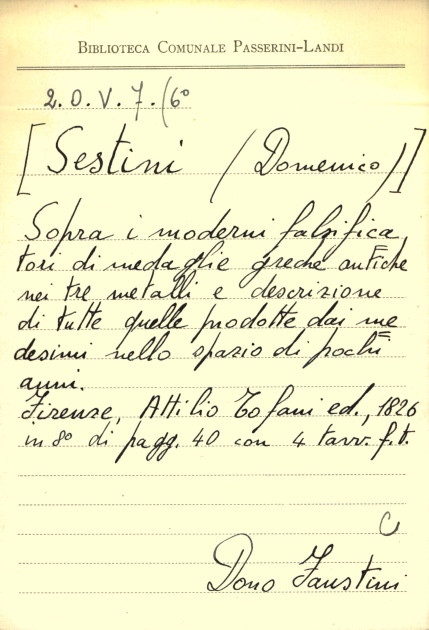 BIBLIOTECA COMUNALE PASSERINI-LANDI
2. O. V. 7. (6°
[Sestini (Domenico)]
Sopra i moderni falsifica
tori di medaglie greche antiche
nei tre metalli e descrizione
di tutte quelle prodotte dai me=
desimi nello spazio di pochi
anni.
Firenze, Attilio Tofani ed., 1826
in 8° di pagg. 40 con 4 tavv. f.t.
C
Dono Faustini